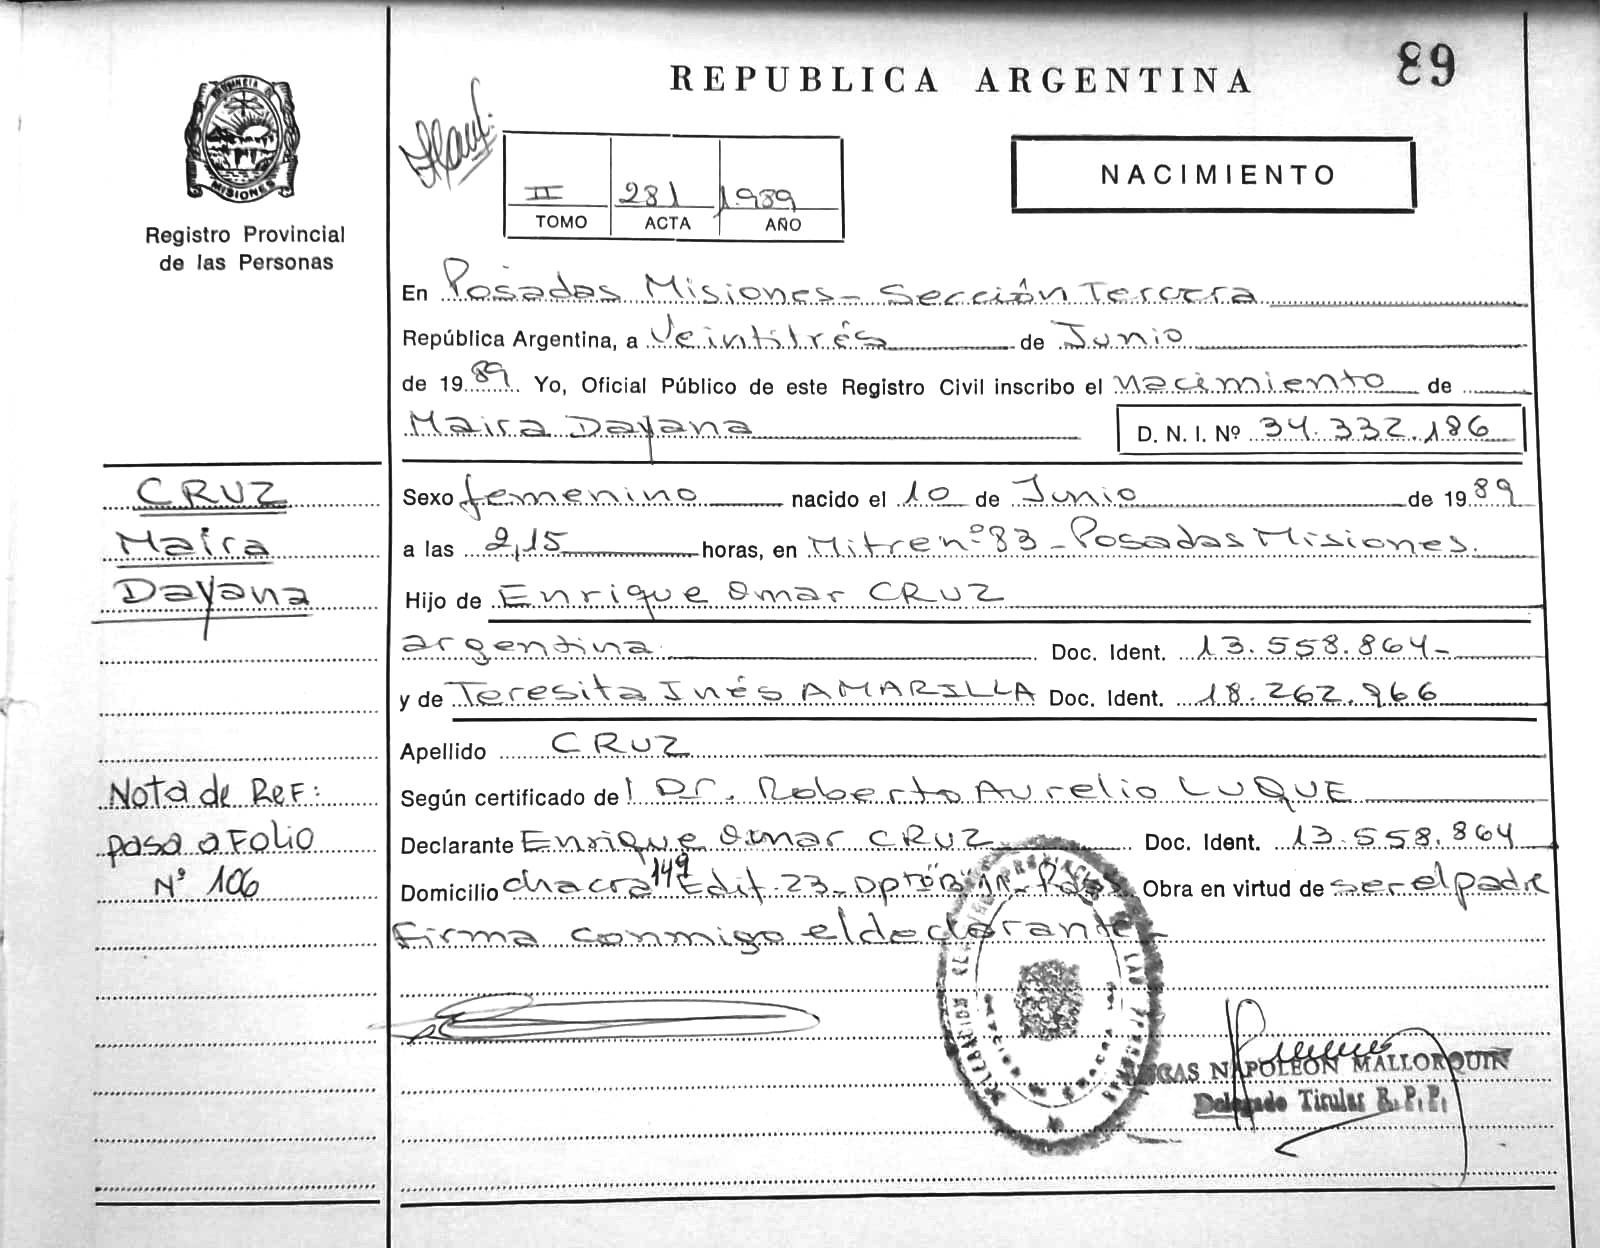 89
REPUBLICA ARGENTINA
PROVINCIA DE
MISIONES
Registro Provincial
de las Personas
II 281 1989
TOMO ACTA AÑO
NACIMIENTO
En Posadas Misiones - Sección Tercera
República Argentina, a Veintitrés de Junio
de 1989 Yo, Oficial Público de este Registro Civil inscribo el Nacimiento de
Maira Dayana D. N. I. Nº 34.332.186
CRUZ
Maira
Dayana
Sexo femenino nacido el 10 de Junio de 1989
a las 2,15 horas, en Mitre nº 83 - Posadas Misiones.
Hijo de Enrique Omar CRUZ
argentina Doc. Ident. 13.558.864-
y de Teresita Inés AMARILLA Doc. Ident. 18.262.966
Apellido CRUZ
Nota de Ref:
pasa a Folio
Nº 106
Según certificado del Dr. Roberto Aurelio LUQUE
Declarante Enrique Omar CRUZ Doc. Ident. 13.558.864
Domicilio chacra 149 Edif. 23 - Dpto "B" Obra en virtud de ser el padre
Firma conmigo el declarante
NAPOLEON MALLORQUIN
Delegado Titular R.P.P.